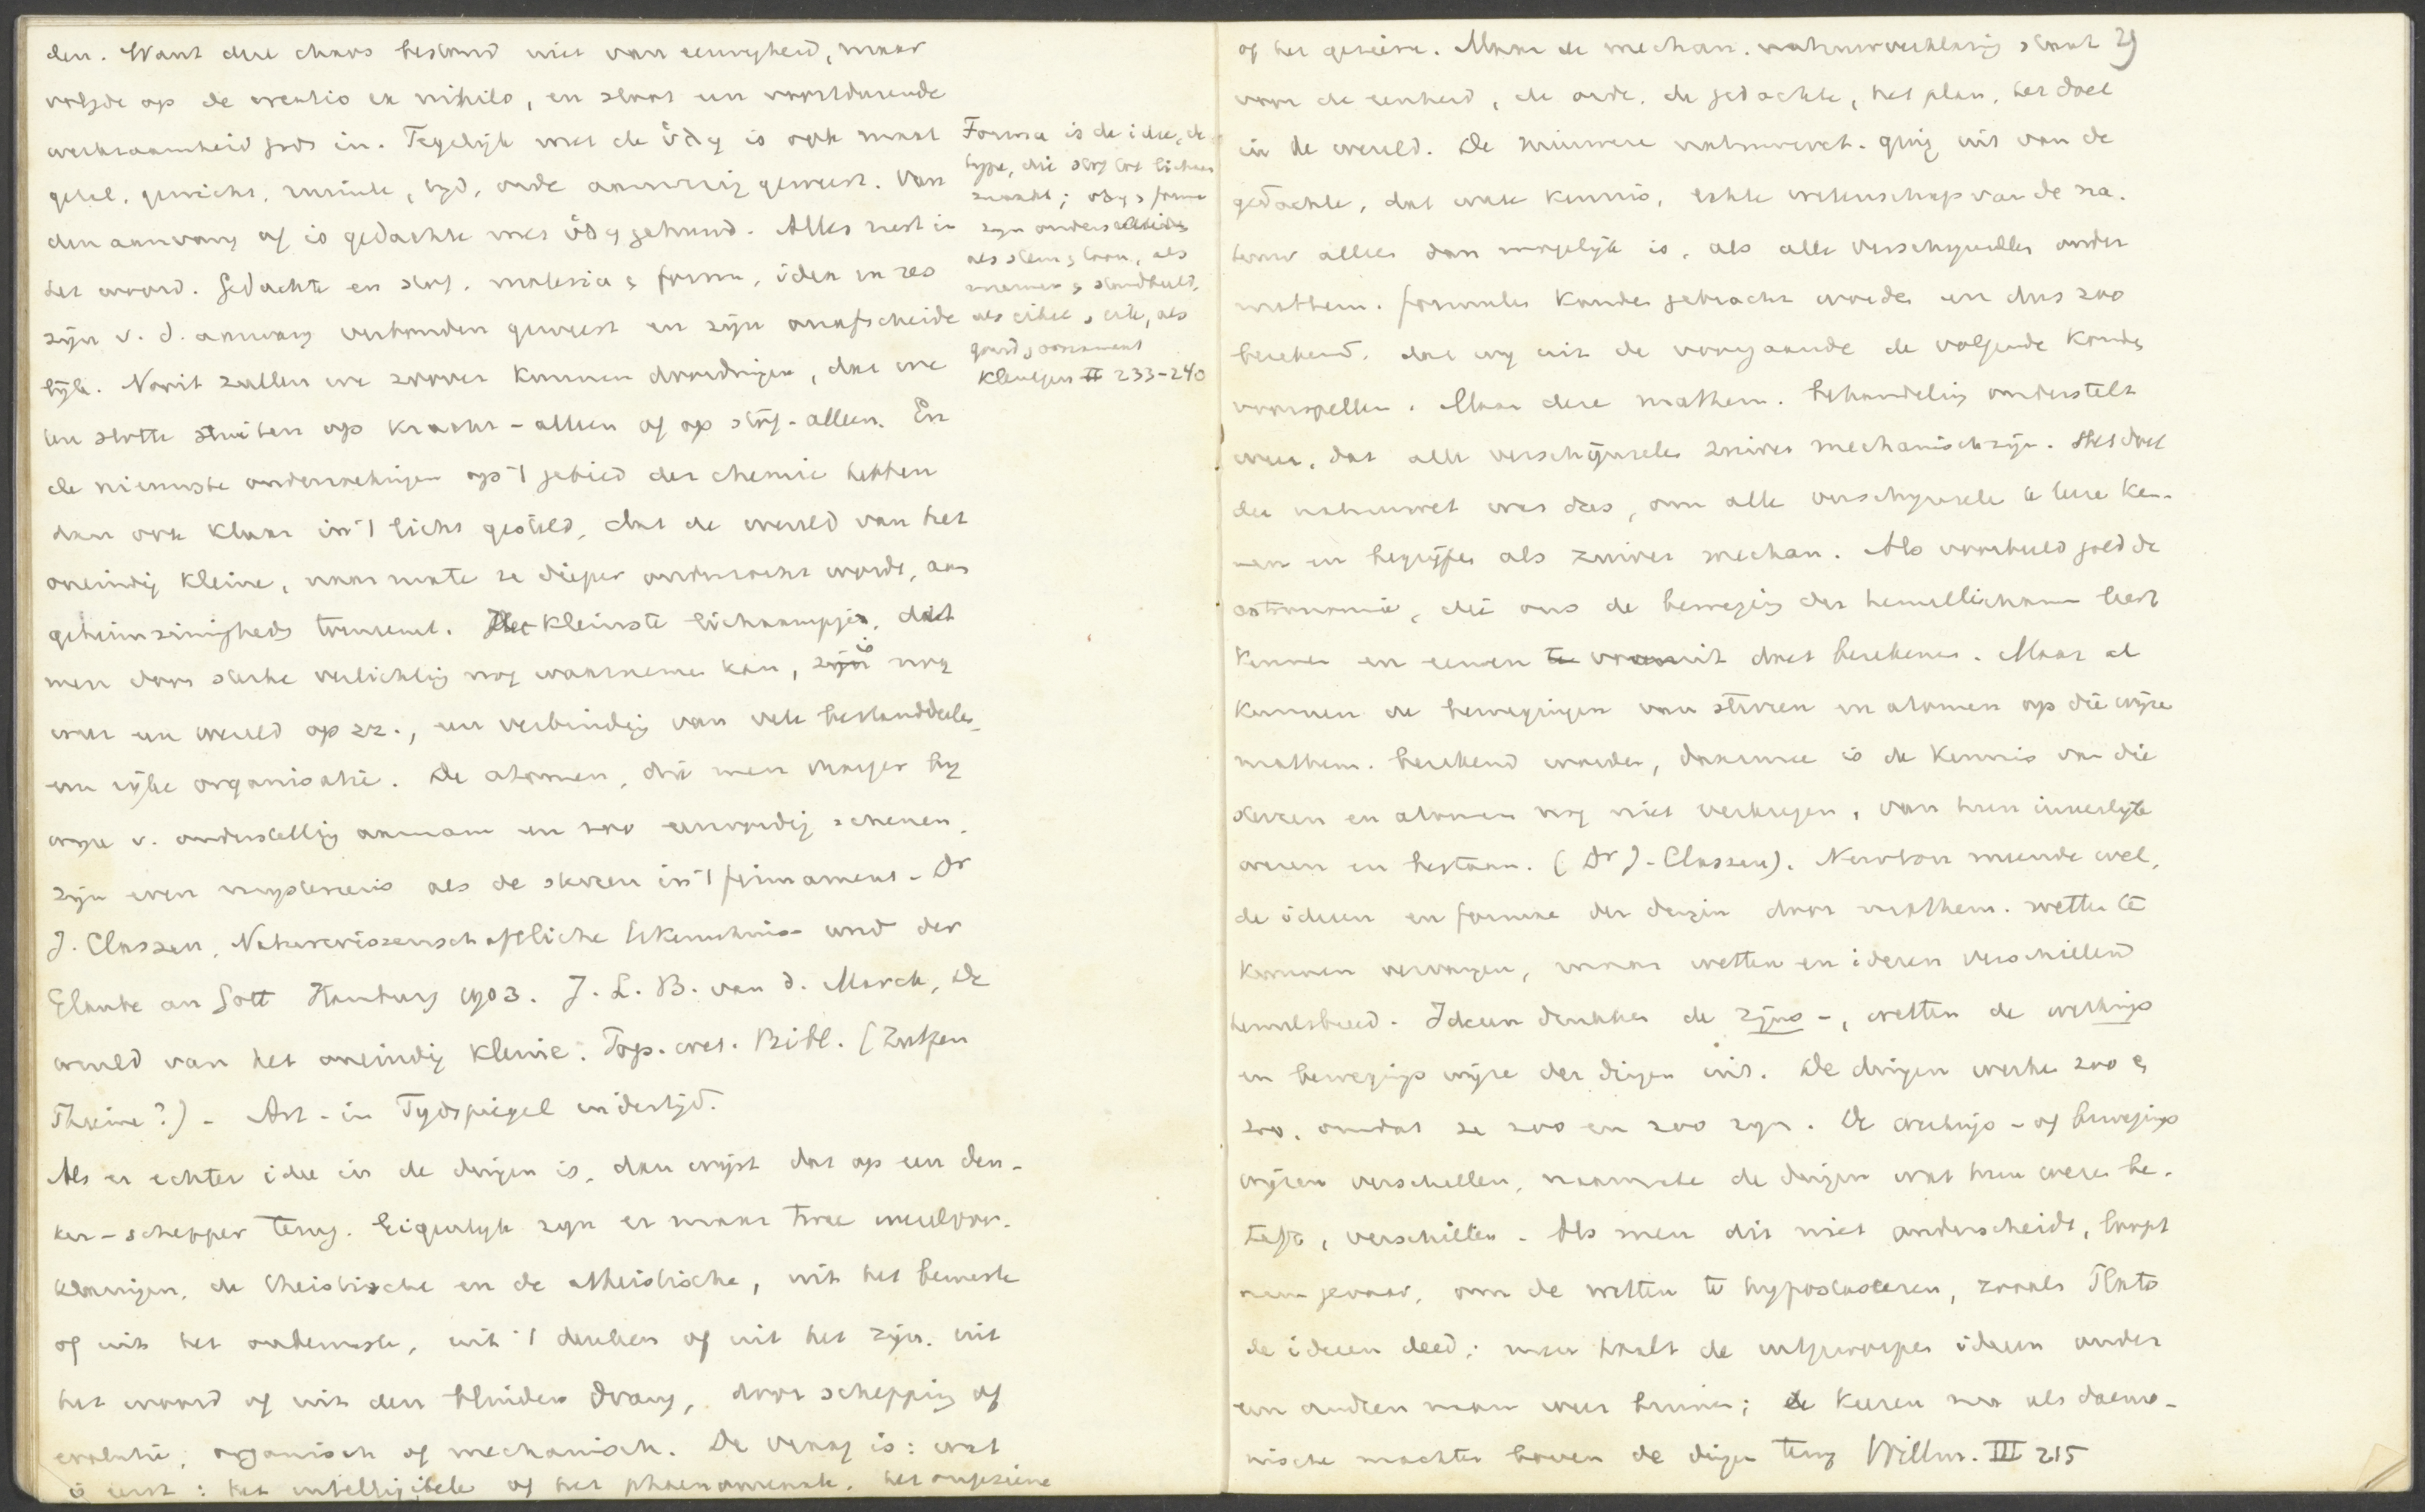 den. Want die chaos bestond niet van eeuwigheid, maar
volgde op de creatio ex nihilo, en sloot een voortdurende
werkzaamheid gods in. Tegelijk met de ὕλη is ook maat
getal, gewicht, ruimte, tyd, orde aanwezig geweest. Van
den aanvang af is gedachte met ὕλη gehuwd. Alles rust in
het woord. Gedachte en stof, materia & forma, idea en res
zijn v. d. aanvang verbonden geweest en zijn onafscheide
lijk. Nooit zullen we zoover kunnen doordringen, dat we
ten slotte stuiten op kracht-alleen of op stof-alleen. En
de nieuwste onderzoekingen op 't gebied der chemie hebben
dan ook klaar in 't licht gesteld, dat de wereld van het
oneindig kleine, naar mate ze dieper onderzocht wordt, aan
geheimzinnigheid toeneemt. Het kleinste lichaampje, dat
men door sterke verlichting nog waarnemen kan, is nog
weer een wereld op zz., een verbinding van vele bestanddeelen,
een rijke organisatie. De atomen, die men vroeger by
wyze v. onderstelling aannam en zoo eenvoudig schenen,
zijn even mysterieus als de sterren in 't firmament - Dr
J. Classen, Naturwissenschaftliche Erkenntniss und der
Glaube an Gott Hamburg 1903. J. L. B. van d. Marck, De
wereld van het oneindig kleine. Pop. wet. Bibl. (Zutfen
Thieme?) - Art. in Tydspiegel indertijd.
Als er echter idee in de dingen is, dan wijst dat op een den-
ker-schepper terug. Eigenlyk zyn er maar twee wereldver-
klaringen, de theistische en de atheistische, uit het bewuste
of uit het onbewuste, uit 't denken of uit het zijn, uit
het woord of uit den blinden drang, door schepping of
evolutie, organisch of mechanisch. De vraag is: wat
is eerst: het intelligibele of het phaenomenale, het ongeziene
Forma is de idee, de
type, die stof tot lichaam
maakt; ὕλη & forma
zyn onderscheiden
als steen & toon, als
marmer & standbeeld,
als eikel & eik, als
goud & ornament
Kleutgen II 233-240
of het geziene. Maar de mechan. natuurverklaring staat 29
voor de eenheid, de orde, de gedachte, het plan, het doel
in de wereld. De nieuwere natuurwet. ging uit van de
gedachte, dat ware kennis, echte wetenschap van de na-
tuur alleen dan mogelijk is, als alle verschynselen onder
mathem. formules konden gebracht worden en dus zoo
berekend, dat wy uit de voorgaande de volgende konden
voorspellen. Maar deze mathem. behandeling onderstelt
weer, dat alle verschijnselen zuiver mechanisch zijn. Het doel
der natuurwet was dus, om alle verschynselen te leeren ken-
nen en begrijpen als zuiver mechan. Als voorbeeld gold de
astronomie, die ons de beweging der hemellichamen leert
kennen en eeuwen vooruit doet berekenen. Maar al
kunnen de bewegingen van sterren en atomen op die wijze
mathem. berekend worden, daarmee is de kennis van die
sterren en atomen nog niet verkregen, van hun innerlyk
wezen en bestaan. (Dr J. Classen). Newton meende wel,
de ideeen en formae der dingen door mathem. wetten te
kunnen vervangen, maar wetten en ideeen verschillen
hemelsbreed. Ideeen drukken de zijns-, wetten de werkings
en bewegings wijze der dingen uit. De dingen werken zoo &
zoo, omdat ze zoo en zoo zyn. De werkings- of bewegings
wijzen verschillen, naarmate de dingen wat hun wezen be-
treft, verschillen. Als men dit niet onderscheidt, loopt
men gevaar, om de wetten te hypostaseeren, zooals Plato
de ideeen deed; men haalt de uitgeworpen ideeen onder
een anderen naam weer binnen; ze keeren nu als daemo-
nische machten boven de dingen terug Willm. III 215